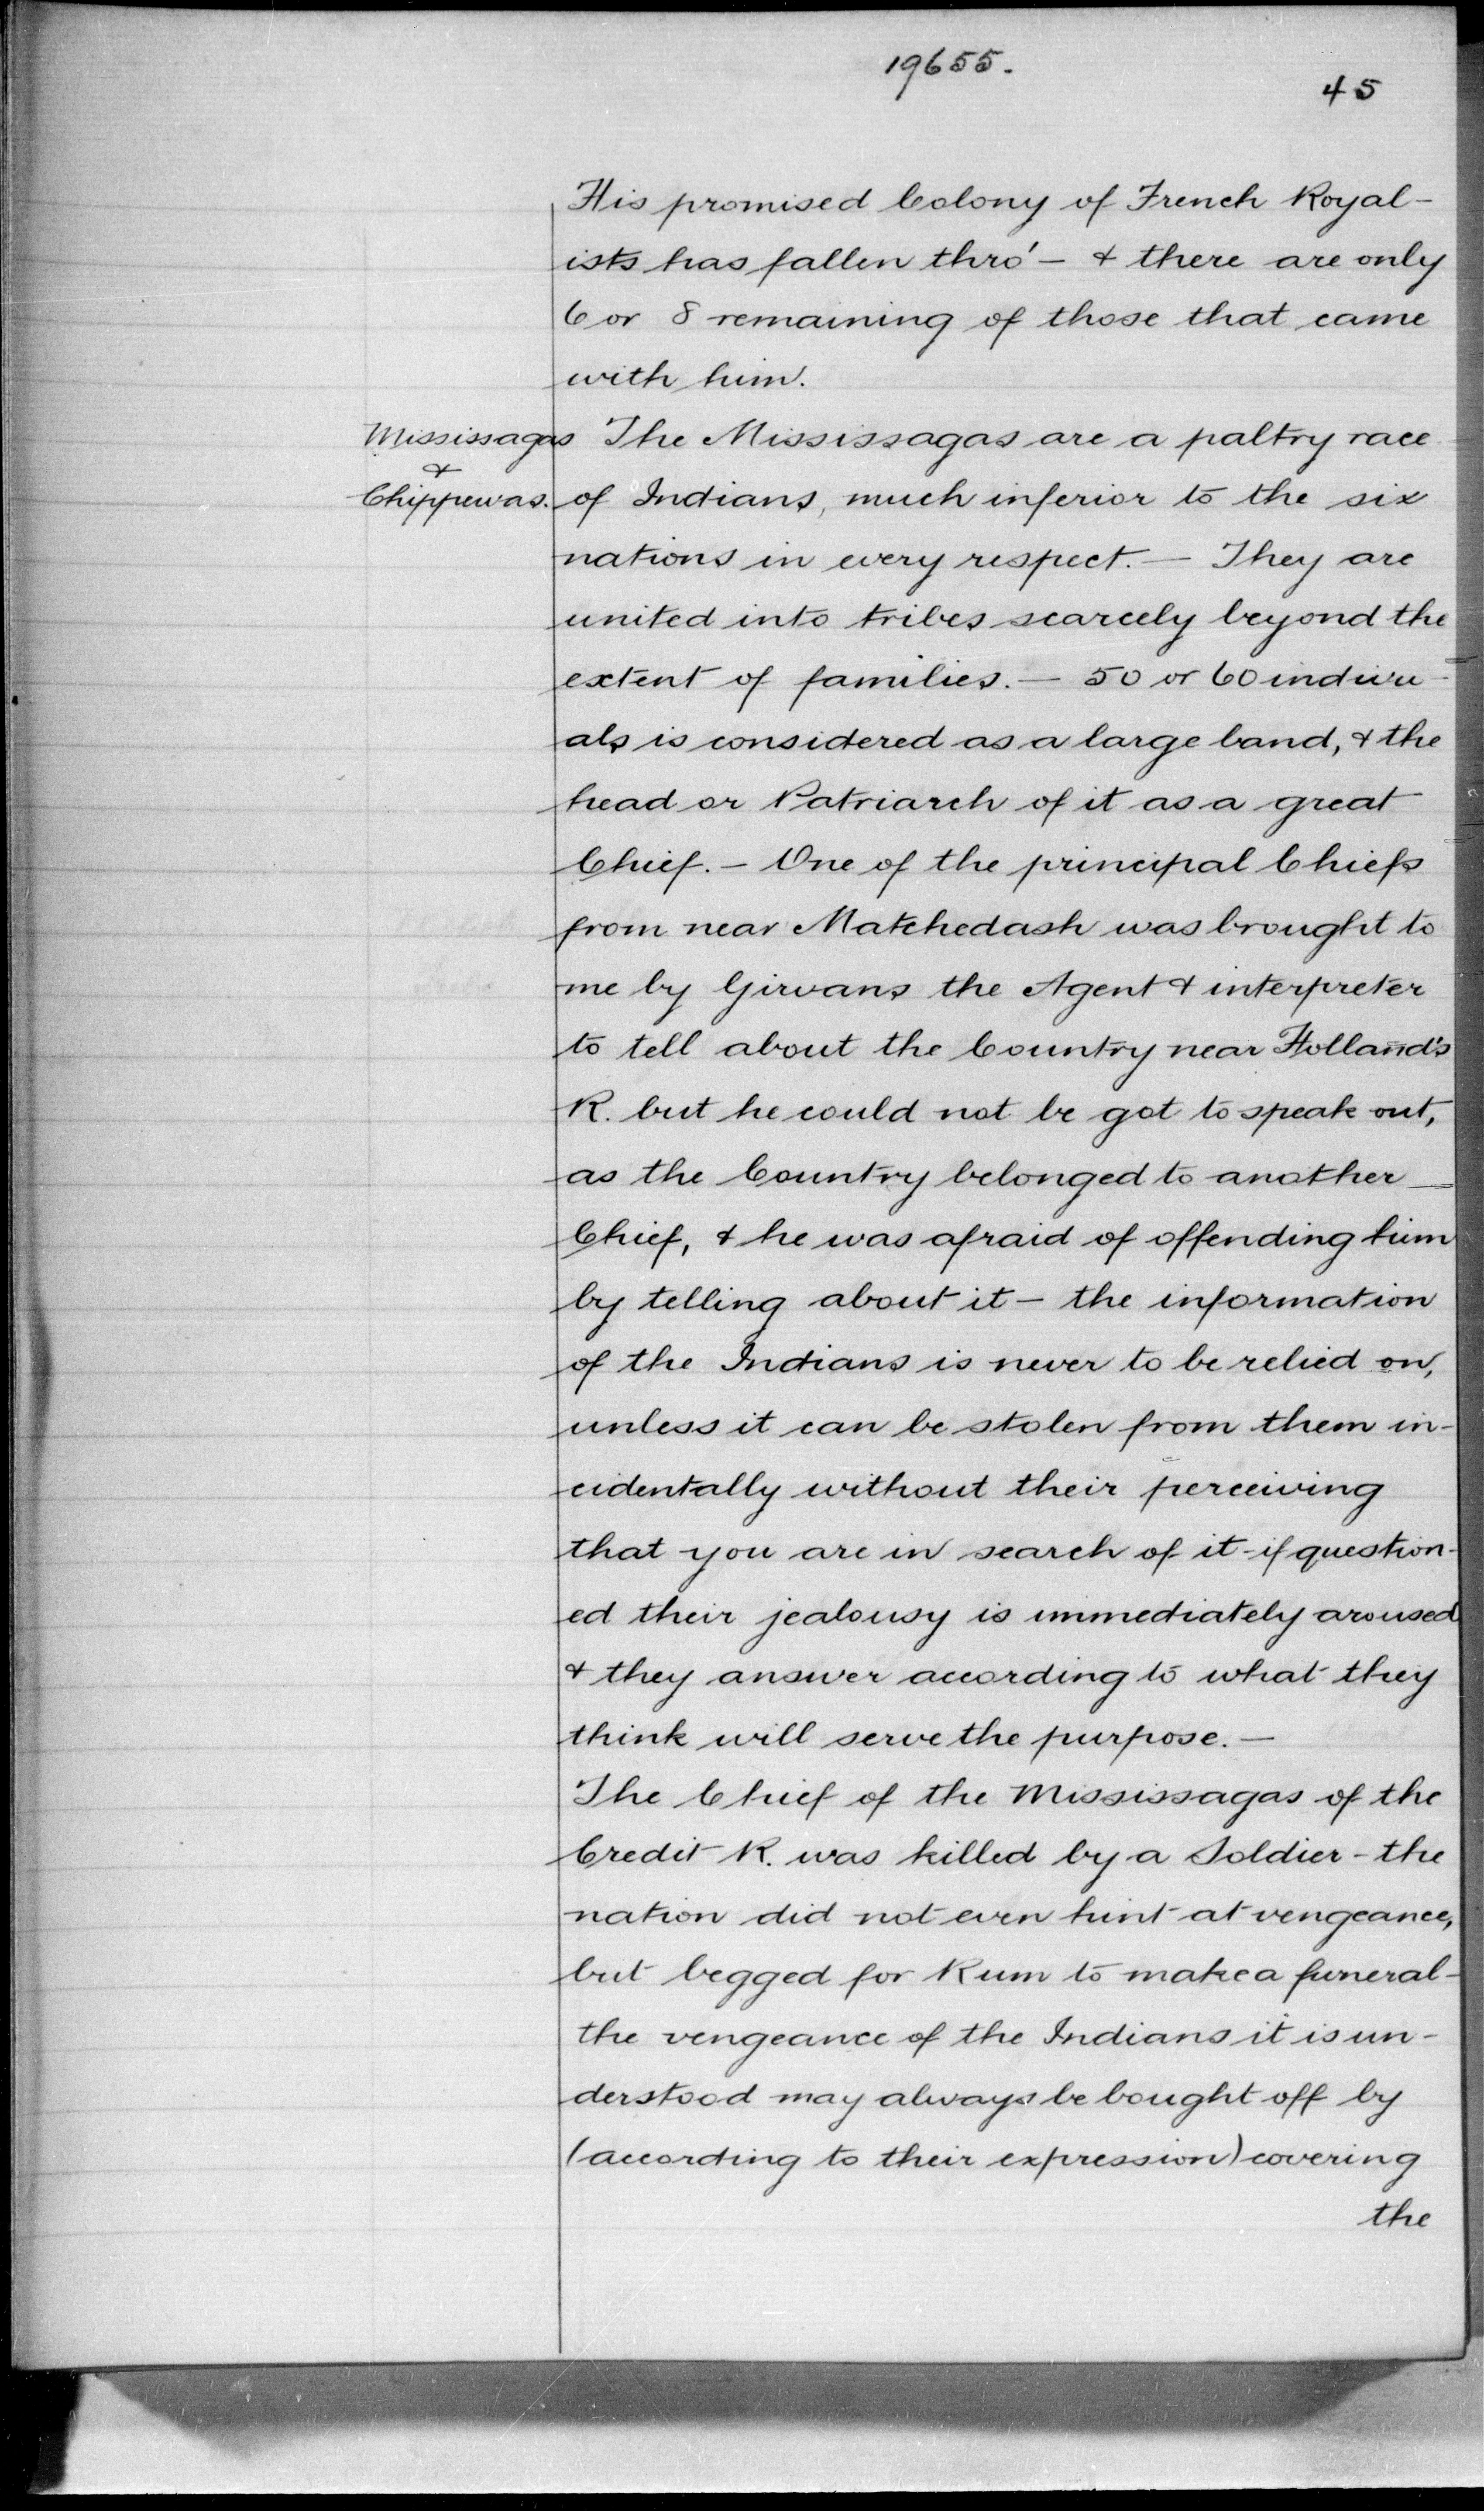 19655.
45
His promised Colony of French Royal-
ists has fallen thro' - & there are only
6 or 8 remaining of those that came
with him.
Mississagas
&
Chippewas.
The Mississagas are a paltry race
of Indians, much inferior to the six
nations in every respect. - They are
united into tribes scarcely beyond the
extent of families. - 50 or 60 indivu-
als is considered as a large band, & the
head or Patriarch of it as a great
Chief. - One of the principal Chiefs
from near Matchedash was brought to
me by Girvans the Agent & interpreter
to tell about the Country near Holland's
R. but he could not be got to speak out,
as the Country belonged to another
Chief, & he was afraid of offending him
by telling about it - the information
of the Indians is never to be relied on,
unless it can be stolen from them in-
cidentally without their perceiving
that you are in search of it - if question-
ed their jealousy is immediately aroused
& they answer according to what they
think will serve the purpose. -
The Chief of the Mississagas of the
Credit R. was killed by a Soldier - the
nation did not even hint at vengeance,
but begged for Rum to make a funeral -
the vengeance of the Indians it is un-
derstood may always be bought off by
(according to their expression) covering
the